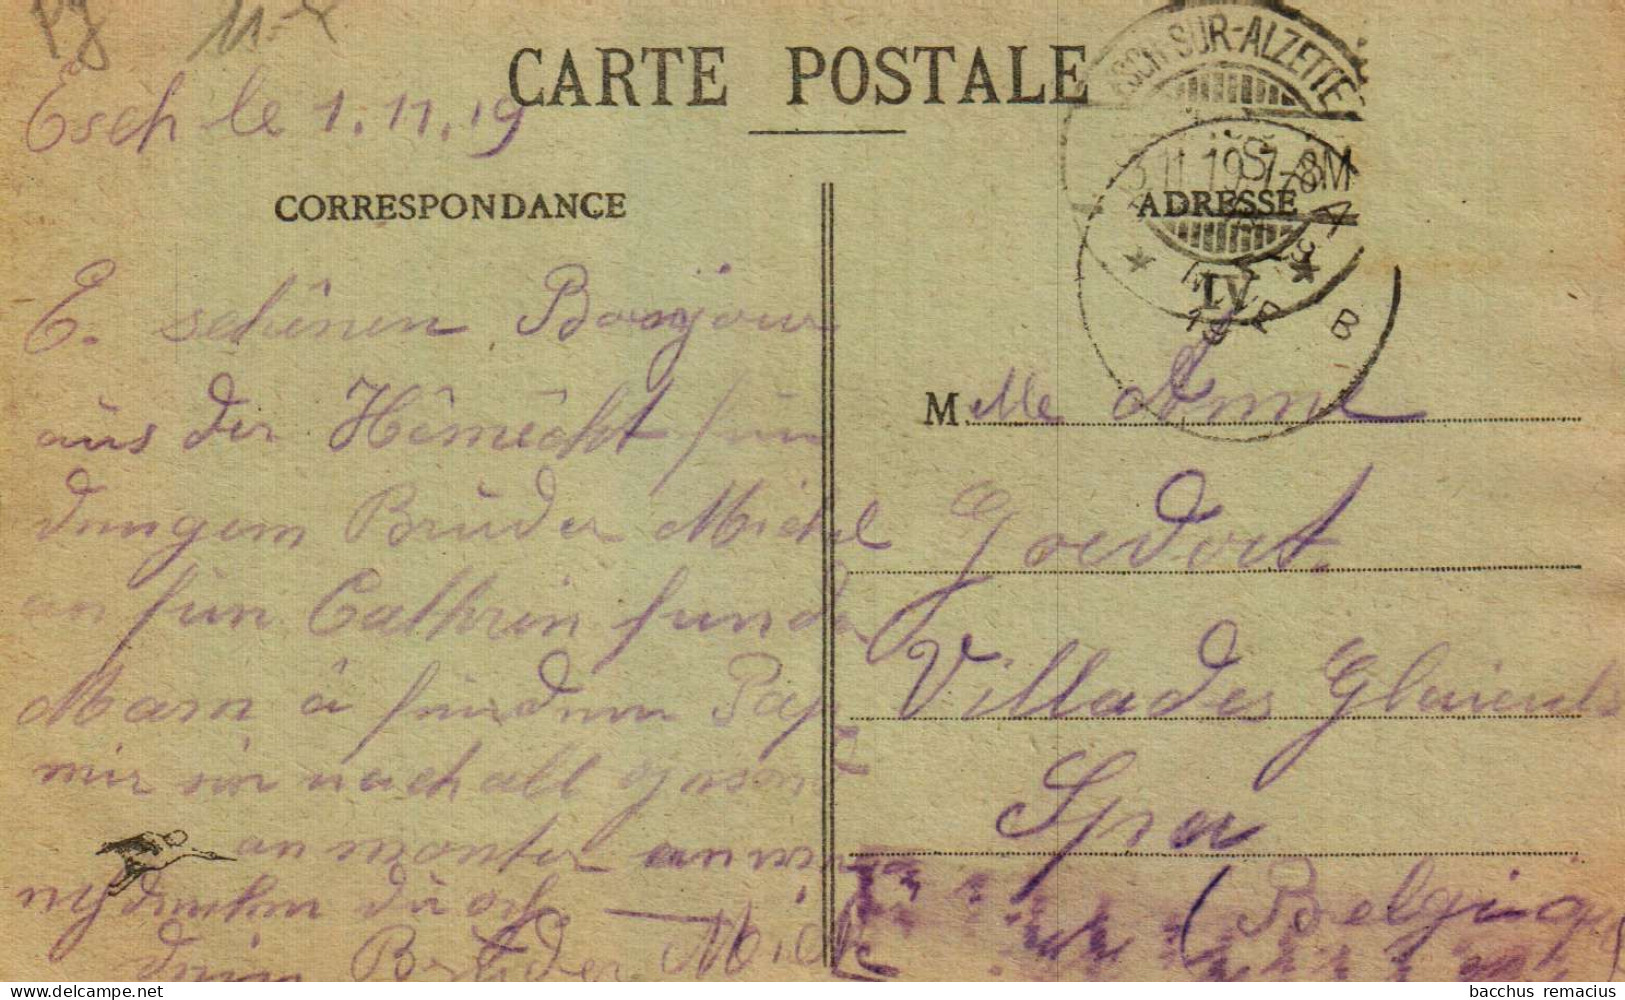 Esch le 1.11.19
CARTE POSTALE
ESCH-SUR-ALZETTE
11.19 7-8M
IV
SPA
19
B
CORRESPONDANCE
ADRESSE
E. schênen Bonjour
aus der Hêmecht fun
dengem Bruder Michel
an fun Cathrin fun der
Mam a fun dem Pap
mir sin nach all gesont
an monter an mir
denken
Bruder
Melle Anne
Goedert.
Villa des Glaieuls
Spa
(Belgique)
bacchus remacius